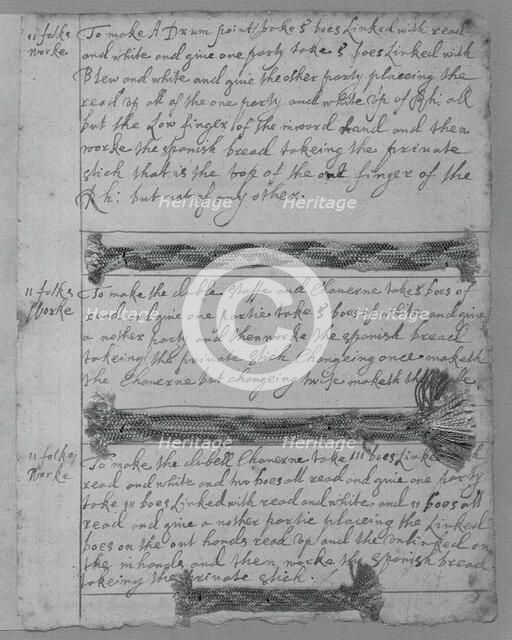 11 folks To make A Drum point take 5 boes Linked with read
Worke and white and give one party take 5 boes Linked with
Blew and white and give the other party placeing the
read up all of the one party and white up of Rh: all
but the Low finger of the inword hand and then
worke the spanish bread takeing the privat
stick that is the top of the out finger of the
Rh: but not of any other.
Heritage Heritage
11 folks To make the duble staffe and Chanerne take 5 boes of
Worke read and give one partie take 5 boes of white and give
a nother party and then worke the spanish bread
takeing the private stick Changeing once maketh
the Chanerne but changeing twise maketh the
Heritage Heritage
©
Heritage Heritage
11 folks To make the dubell Chanerne take 111 boes Linked
Worke read and white and two boes all read and give one party
take 111 boes Linked with read and white and 11 boes all
read and give a nother partie placeing the Linked
boes on the out hands read up and the unlinked on
the in hands and then worke the spanish bread
takeing the private stick.